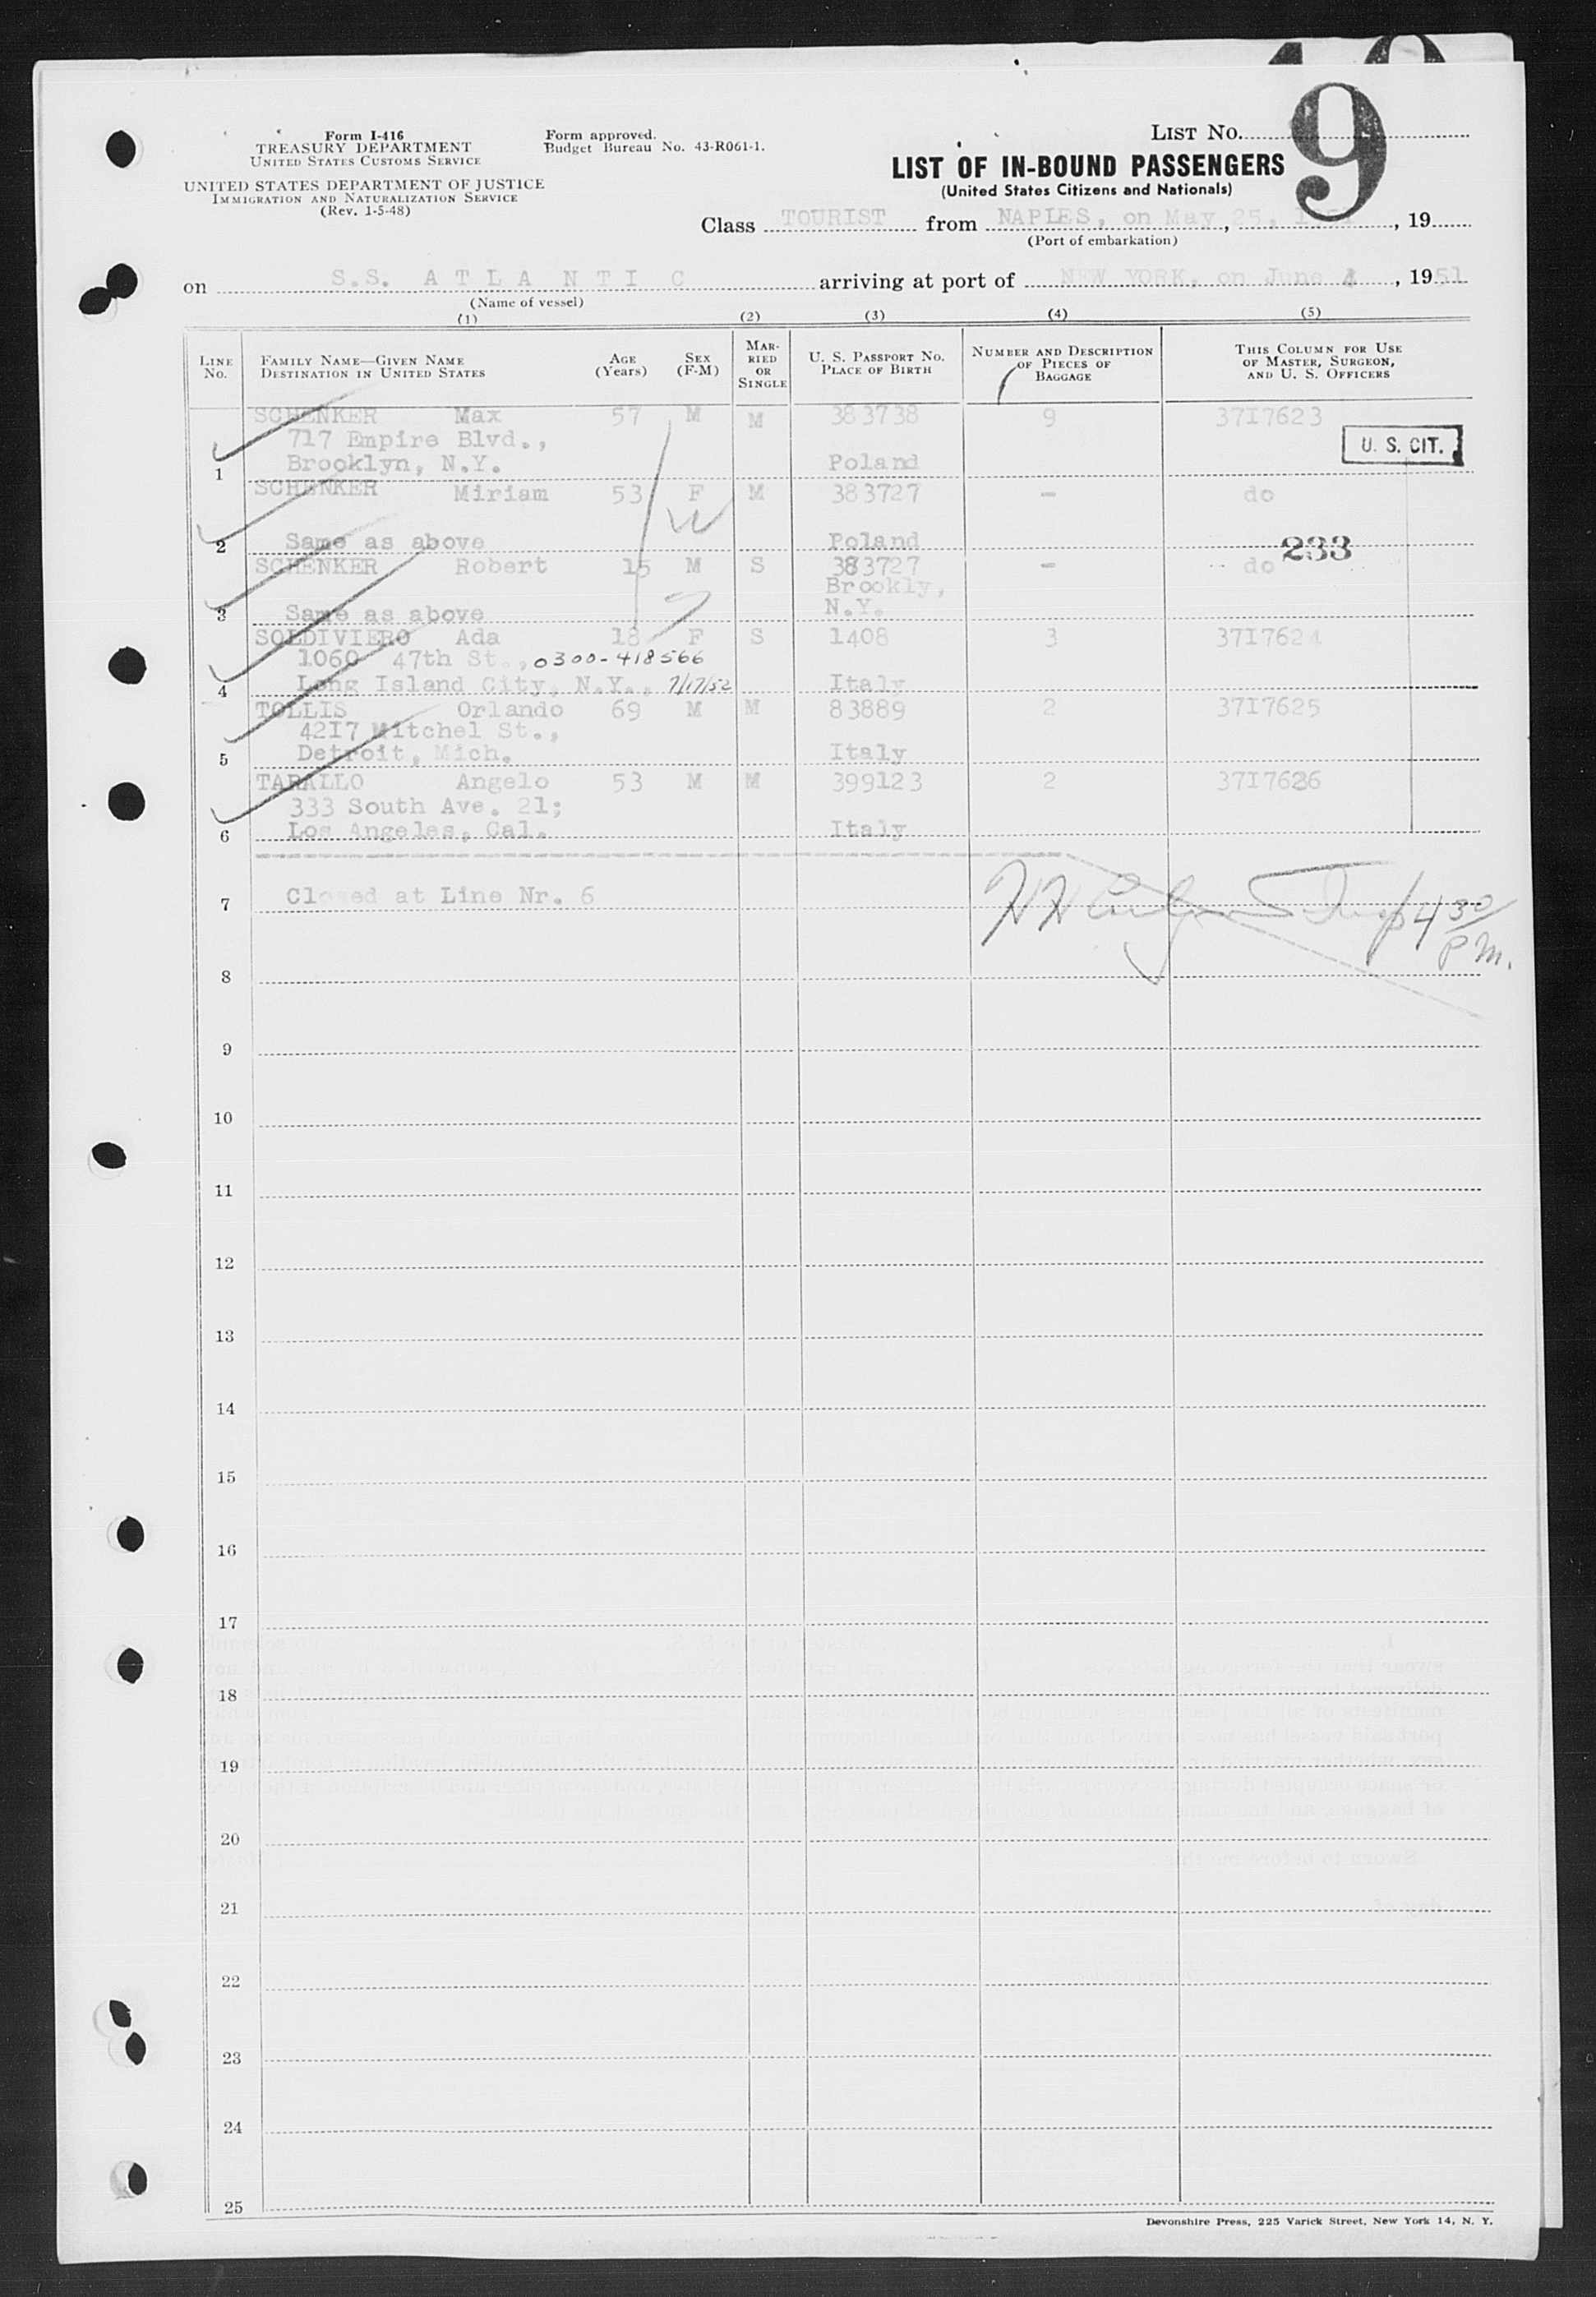 Form I-416
TREASURY DEPARTMENT
UNITED STATES CUSTOMS SERVICE
UNITED STATES DEPARTMENT OF JUSTICE
IMMIGRATION AND NATURALIZATION SERVICE
(Rev. 1-5-48)
Form approved.
Budget Bureau No. 43-R061-1.
LIST NO. 9
LIST OF IN-BOUND PASSENGERS
(United States Citizens and Nationals)
Class TOURIST from NAPLES, on May 25, , 19
(Port of embarkation)
on S.S. A T L A N T I C arriving at port of NEW YORK, on June , 1951
(Name of vessel)
(1) (2) (3) (4) (5)
LINE NO. FAMILY NAME—GIVEN NAME DESTINATION IN UNITED STATES AGE (Years) SEX (F-M) MARRIED OR SINGLE U. S. PASSPORT NO. PLACE OF BIRTH NUMBER AND DESCRIPTION OF PIECES OF BAGGAGE THIS COLUMN FOR USE OF MASTER, SURGEON, AND U. S. OFFICERS
SCHENKER Max 57 M M 383738 9 3717623
717 Empire Blvd.,
U. S. CIT.
1 Brooklyn, N.Y. Poland
SCHENKER Miriam 53 F M 383727 - do
W
2 Same as above Poland 233
SCHENKER Robert 15 M S 383727 - do
Brookly,
3 Same as above N.Y.
SOLDIVIERO Ada 18 F S 1408 3 3717624
1060 47th St., 0300-418566
4 Long Island City, N.Y., 7/17/52 Italy
TOLLIS Orlando 69 M M 83889 2 3717625
4217 Mitchel St.,
5 Detroit, Mich. Italy
TARALLO Angelo 53 M M 399123 2 3717626
333 South Ave. 21;
6 Los Angeles, Cal. Italy
7 Closed at Line Nr. 6
4 30/PM.
8
9
10
11
12
13
14
15
16
17
18
19
20
21
22
23
24
25
Devonshire Press, 225 Varick Street, New York 14, N. Y.